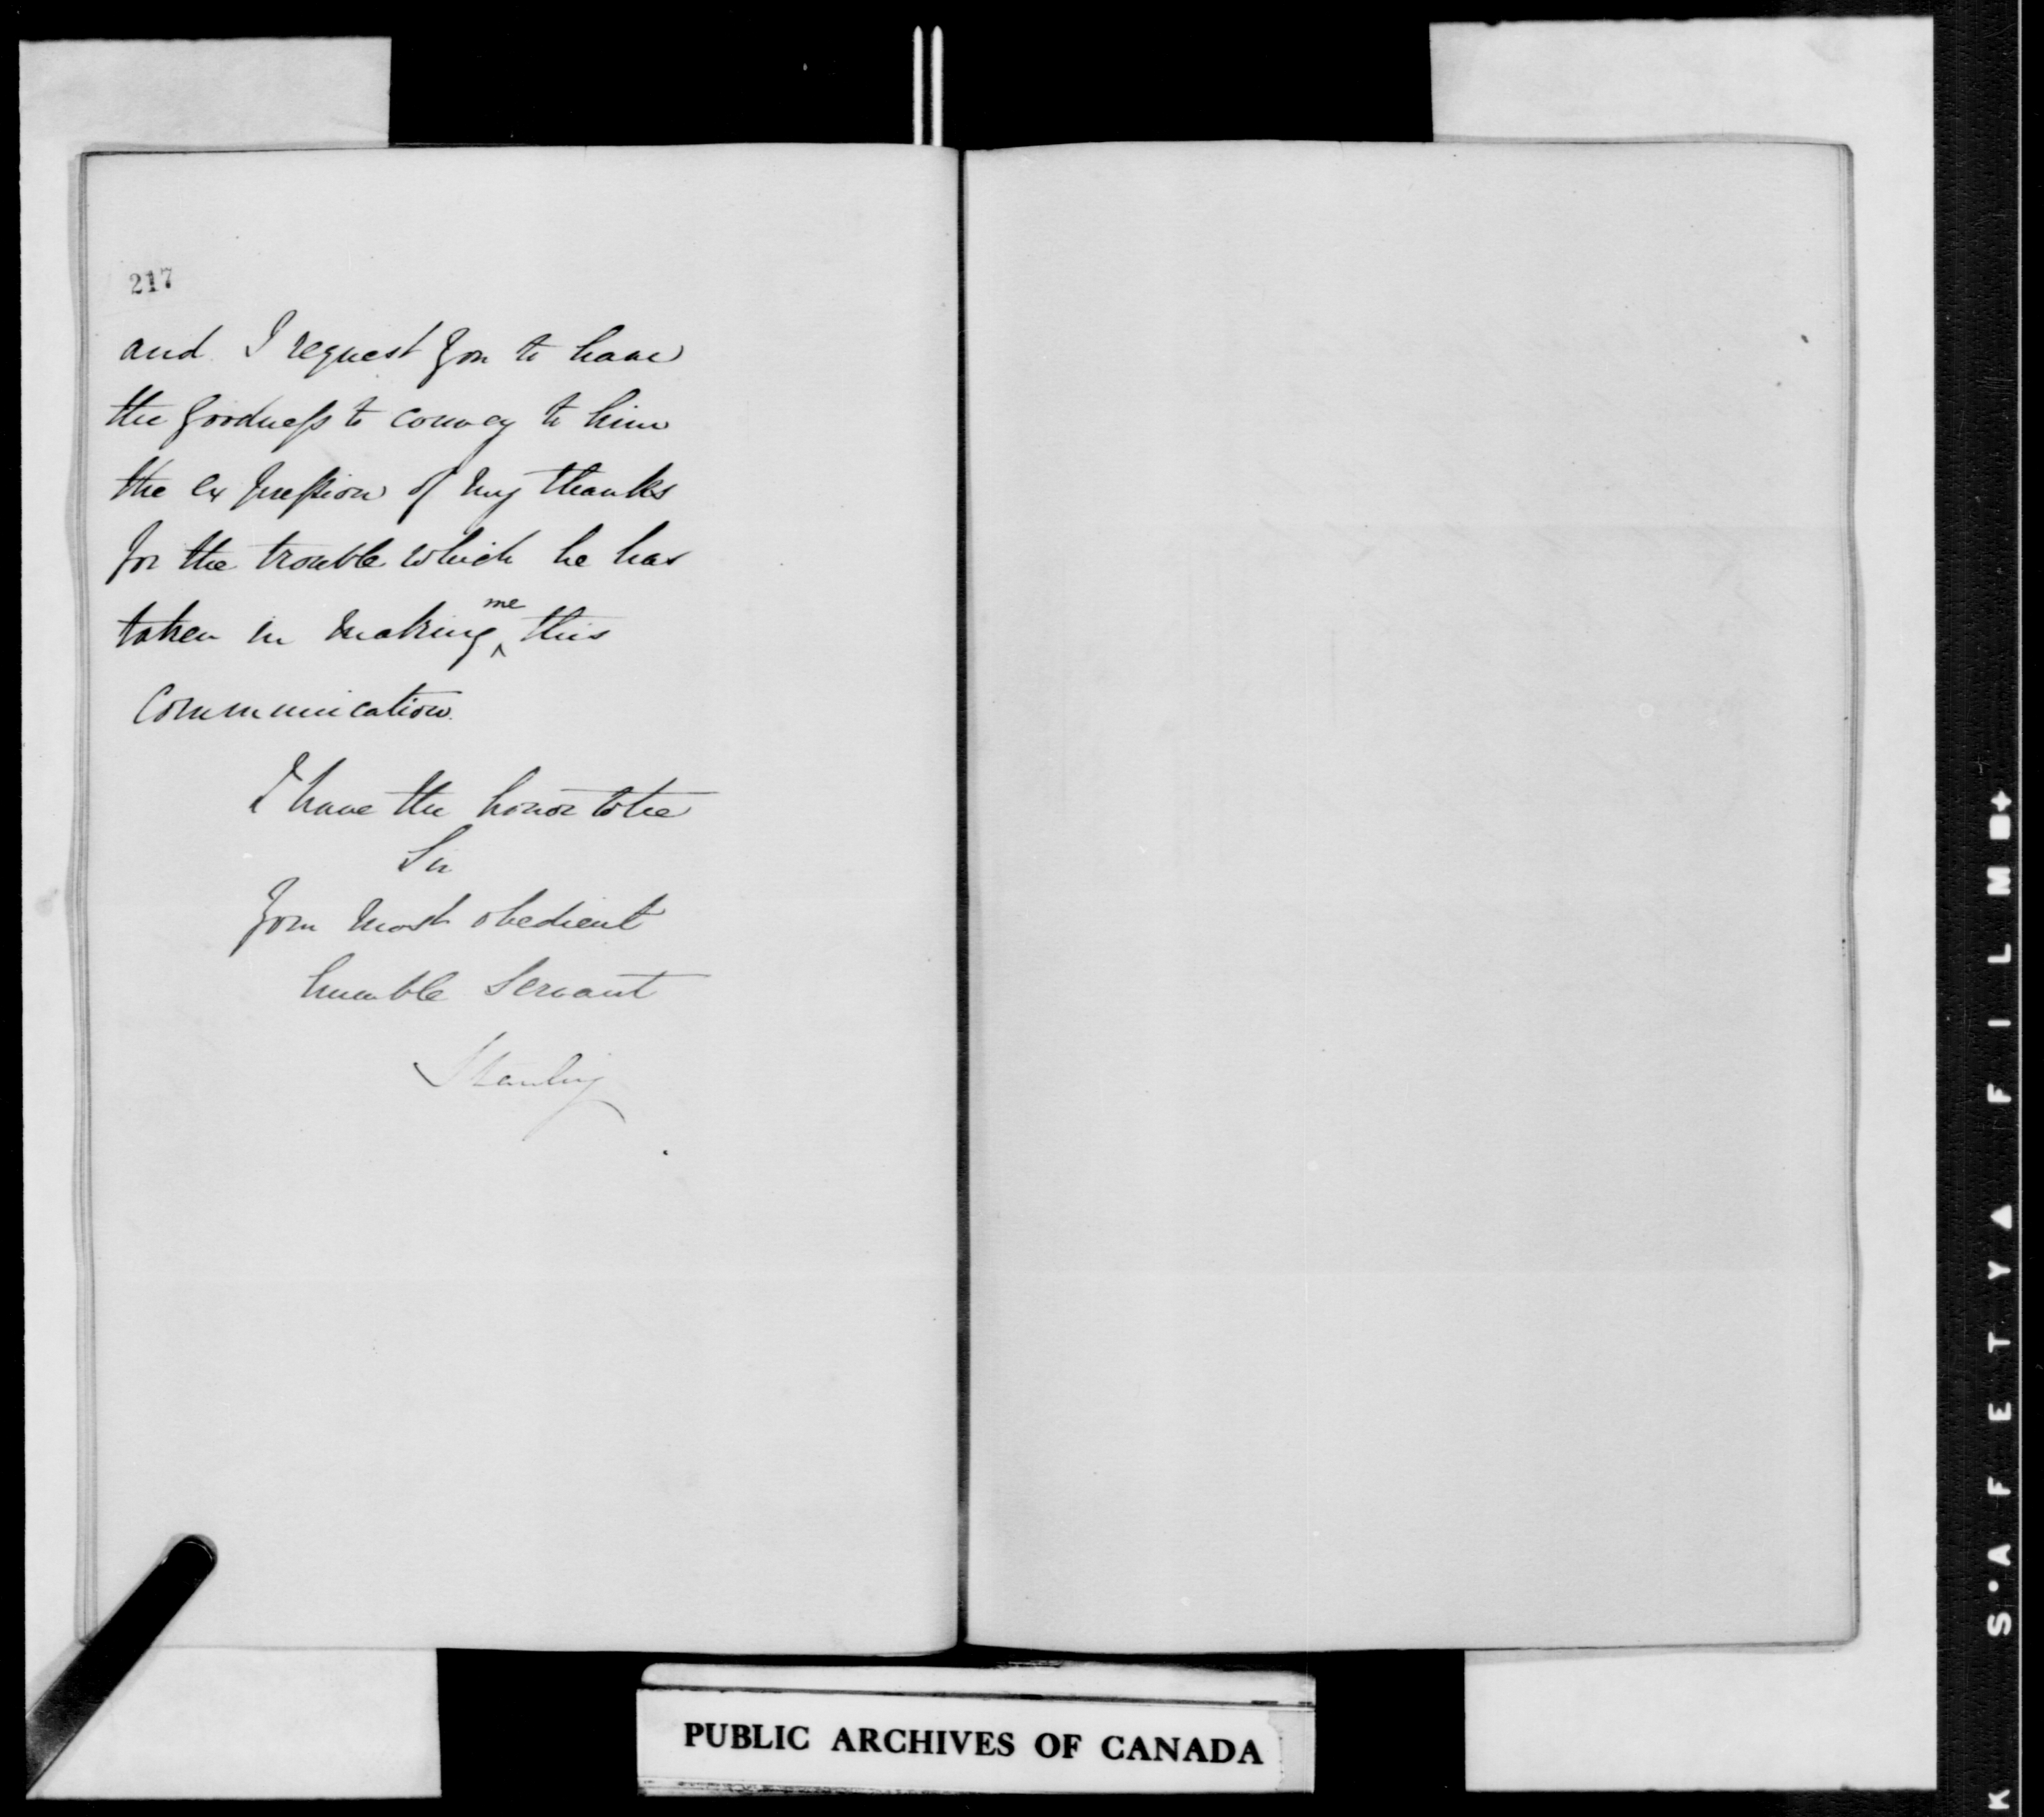 217
and I request you to have
the goodness to convey to him
the expression of my thanks
for the trouble which he has
me
taken in making ‸ this
Communication.
I have the honor to be
Sir
Your most obedient
humble Servant
Stanley
PUBLIC ARCHIVES OF CANADA
K S•AFETY▲ FILM